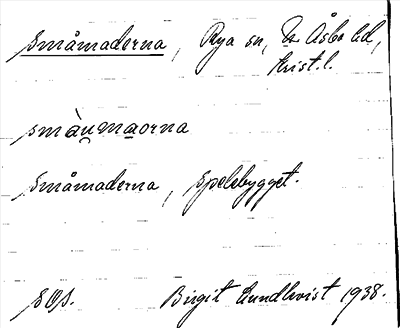 Småmaderna, Rya sn, N. Åsbo hd,
Krist. l.
smàu̯maorna
Småmaderna, Spelebygget.
SOS. Birgit Lundkvist 1938.